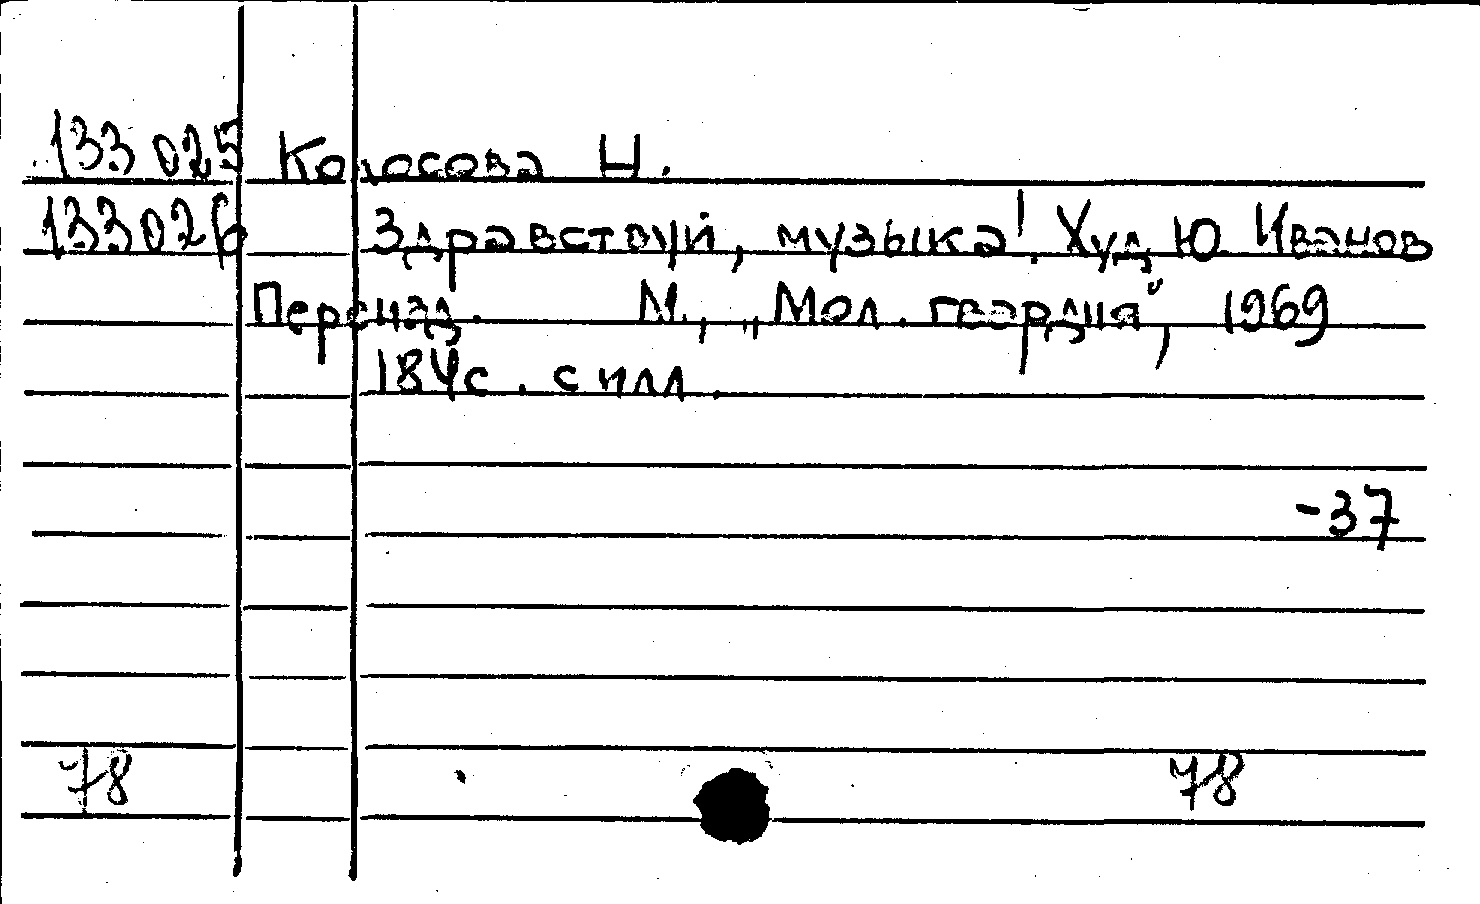 133 025 Колосова Н.
133026 Здравствуй, музыка! Худ. Ю. Иванов
Переизд. М., „Мол. гвардия", 1969
184с. с илл.
-37
78 78